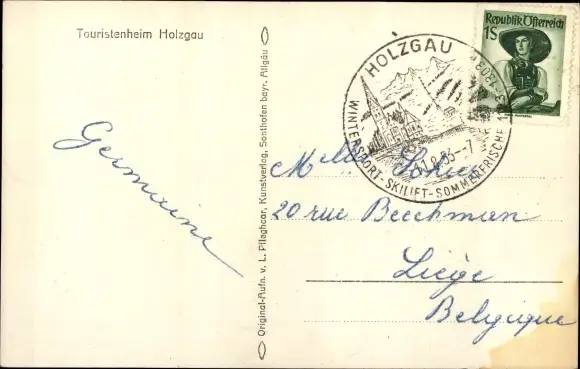 Touristenheim Holzgau
Germaine
Original-Aufn. v. L. Pflaghaar, Kunstverlag, Sonthofen bayr. Allgäu
HOLZGAU
WINTERSPORT-SKILIFT-SOMMERFRISCHE
Republik Österreich
1S
Melle
20 rue Beeckman
Liège
Belgique